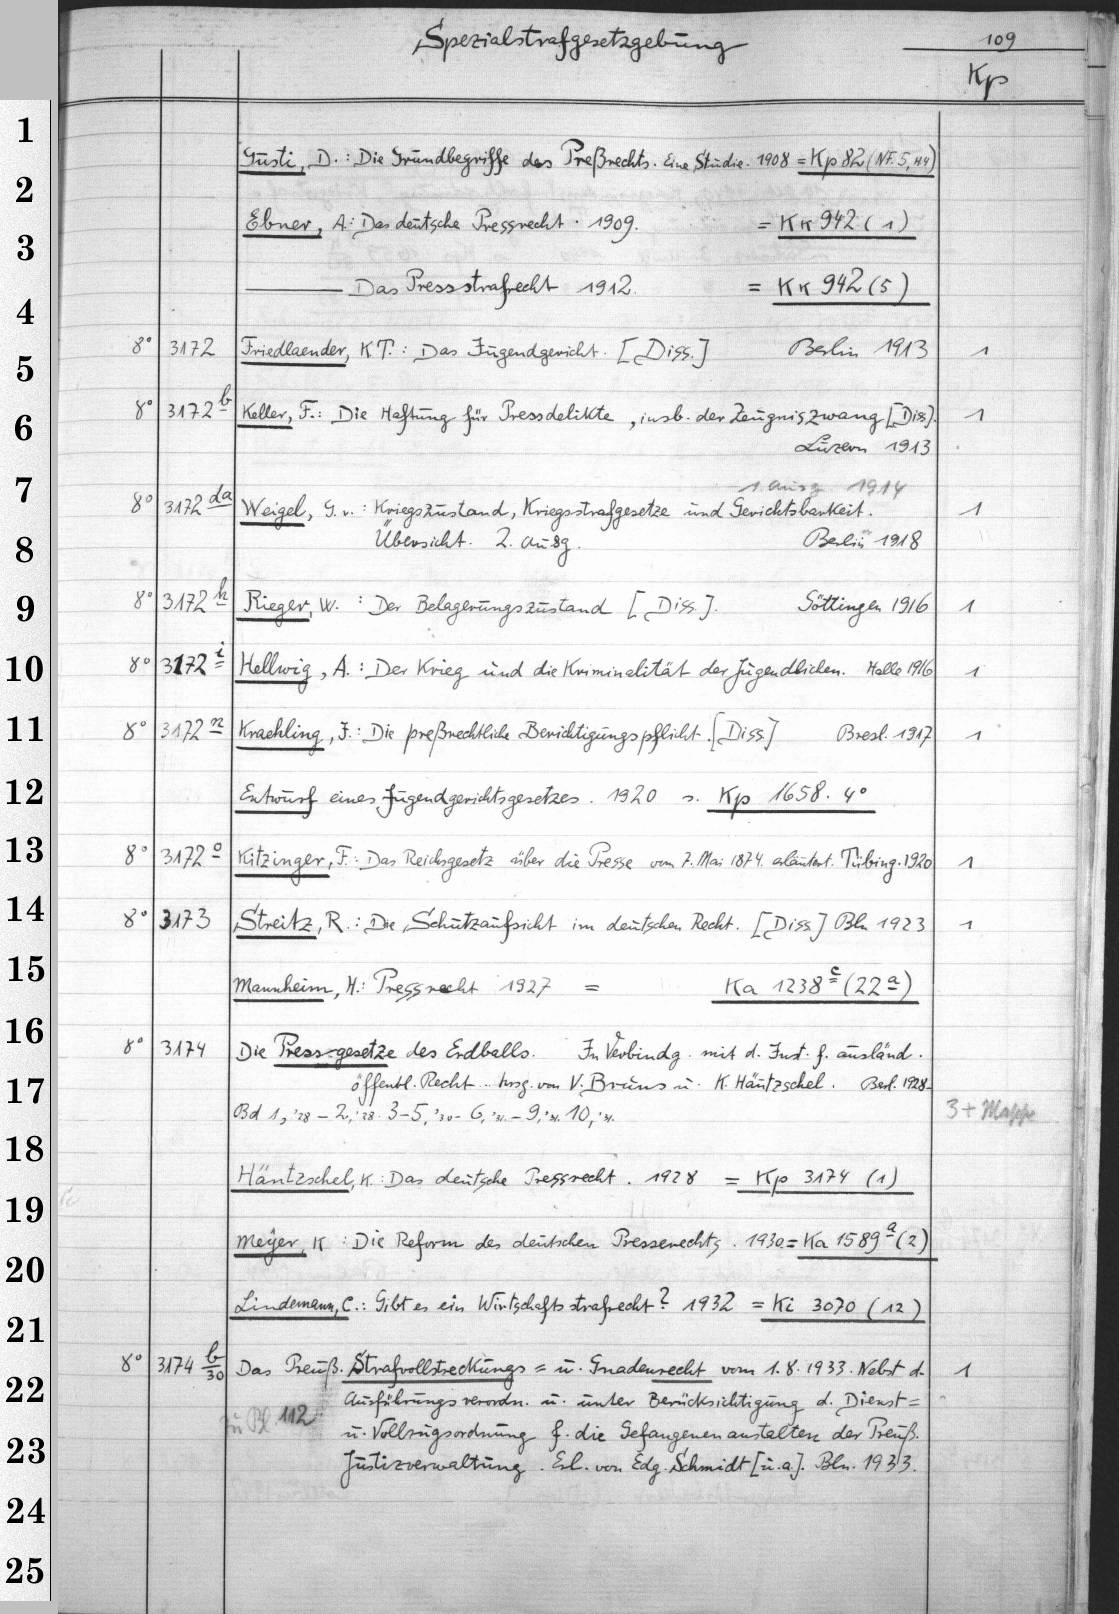 Spezialstrafgesetzgebung
109
Kp
1
Gusti, D.: Die Grundbegriffe des Preßrechts. Eine Studie. 1908 = Kp 82 (NF. 5, H4)
2
Ebner, A.: Das deutsche Pressrecht. 1909. = Kk 942 (1)
3
——— Das Pressstrafrecht 1912. = Kk 942 (5)
4
8° 3172 Friedlaender, KT.: Das Jugendgericht. [Diss.] Berlin 1913 1
5
8° 3172 b Keller, F.: Die Haftung für Pressdelikte, insb. der Zeugniszwang [Diss]. 1
6
Luzern 1913
7
1. Ausg. 1914
8° 3172 da Weigel, G. v.: Kriegszustand, Kriegsstrafgesetze und Gerichtsbarkeit. 1
8
Übersicht. 2. Ausg. Berlin 1918
9
8° 3172 h Rieger, W.: Der Belagerungszustand [Diss.]. Göttingen 1916 1
10
8° 3172 i Hellwig, A.: Der Krieg und die Kriminalität der Jugendlichen. Halle 1916 1
11
8° 3172 n Kraehling, J.: Die preßrechtliche Berichtigungspflicht. [Diss] Bresl. 1917 1
12
Entwurf eines Jugendgerichtsgesetzes. 1920 s. Kp 1658. 4°
13
8° 3172 o Kitzinger, F.: Das Reichsgesetz über die Presse vom 7. Mai 1874. erläutert. Tübing. 1920 1
14
8° 3173 Streitz, R.: Die Schutzaufsicht im deutschen Recht. [Diss] Bln 1923 1
15
Mannheim, H.: Pressrecht 1927 = Ka 1238 c (22 a)
16
8° 3174 Die Press-gesetze des Erdballs. In Verbindg. mit d. Inst. f. ausländ.
17
öffentl. Recht .. hrsg. von V. Bruns u. K. Häntzschel. Berl. 1928-
Bd 1, '28 - 2, '28. 3-5, '30- 6, '31. - 9, '31. 10, '31.
3 + Mappe
18
Häntzschel, K.: Das deutsche Pressrecht. 1928 = Kp 3174 (1)
19
Meyer, K: Die Reform des deutschen Presserechts. 1930 = Ka 1589 a (2)
20
Lindemann, C.: Gibt es ein Wirtschaftsstrafrecht? 1932 = Ki 3070 (12)
21
8° 3174 b/30 Das Preuß. Strafvollstreckungs= u. Gnadenrecht vom 1.8.1933. Nebst d. 1
22
Ausführungsverordn. u. unter Berücksichtigung d. Dienst=
zu Bl 112
u. Vollzugsordnung f. die Gefangenenanstalten der Preuß.
23
Justizverwaltung. Erl. von Edg. Schmidt [u.a]. Bln. 1933.
24
25